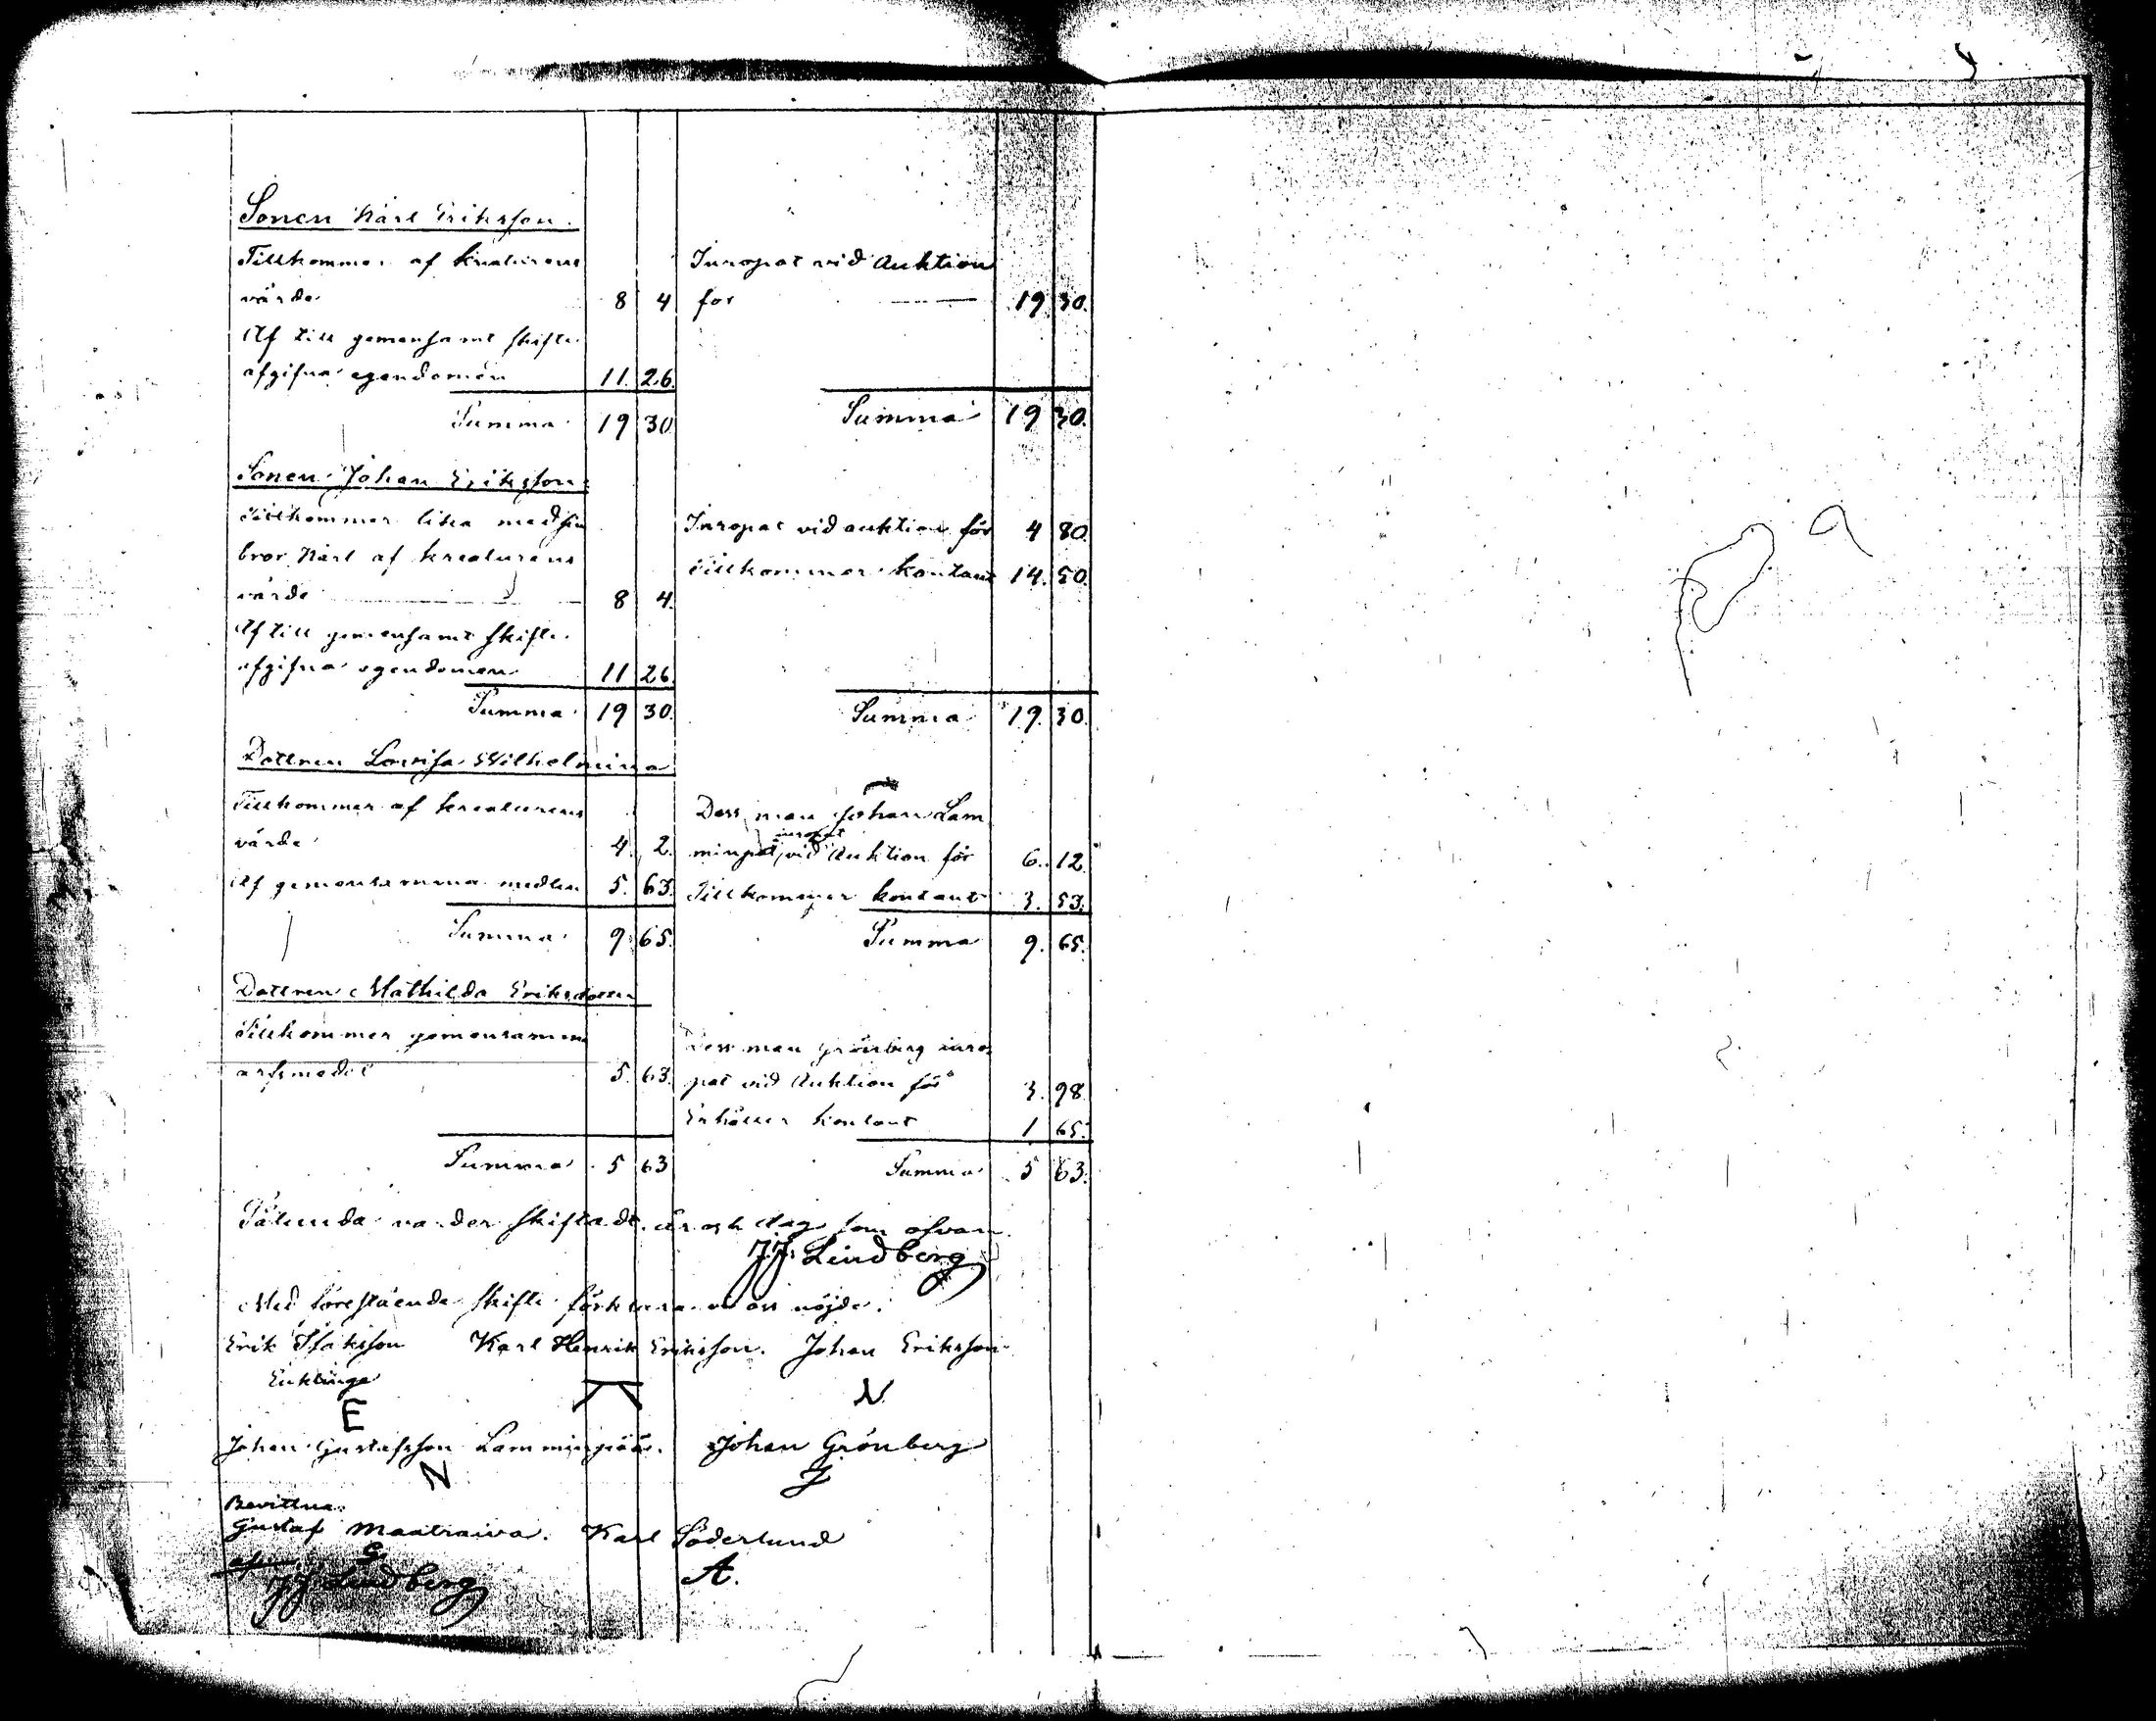 Sonen Karl Eriksson.
Tillkommer af kreaturens
värde 8 4
Af till gemensamt skifte
afgifna egendomen 11. 26.
Summa 19 30
Inropat vid Auktion
for 19. 30.
Summa 19 30.
Sonen Johan Eriksson
Tillkommer lika med sin
bror Karl af kreaturens
värde 8 4.
Af till gemensamt skifte
afgifna egendomen 11 26.
Summa 19 30.
Inropat vid auktion för 4 80.
Tillkommer kontant 14. 50.
Summa 19. 30.
Dottren Lovisa Wilhelmina
Tillkommer af kreaturens
värde 4. 2.
Af gemensamma medlen 5. 63.
Summa 9 65.
Dess man Johan Lam
minpää, inropat vid Auktion för 6. 12
Tillkommer kontant 3. 53.
Summa 9. 65.
Dottren Mathilda Eriksdotter
Tillkommer gemensamma
arfsmedel 5. 63.
Summa 5 63
Dess man Grönberg inro
pat vid Auktion för 3. 98
Erhåller kontant 1 65.
Summa 5 63.
Sålunda vander skiftadt, år och dag som ofvan.
J.J. Lindberg
Med förestående skifte förklara vi oss nöjde.
Erik Isaksson Karl Henrik Eriksson. Johan Eriksson
Enklinge N
E
Johan Gustafsson Lamminpää. Johan Grönberg
N J
Bevittna:
Gustaf Maatraiva. Karl Söderlund
G. A.
J J Lindberg